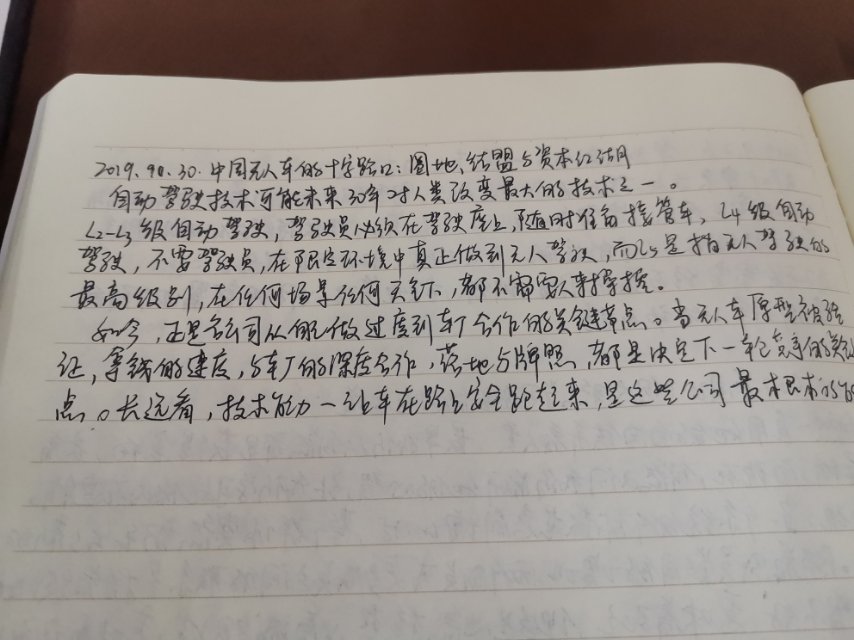 2019.10.30.中国无人车的十字路口：圈地、结盟与资本红颜
自动驾驶技术可能未来30年对人类改变最大的技术之一。
L2-L3级自动驾驶，驾驶员必须在驾驶座上，随时准备接管车，L4级自动
驾驶，不需驾驶员，在限定环境中真正做到无人驾驶，而L5是指无人驾驶的
最高级别，在任何场景任何天气下，都不需要人来操控。
如今，正是各公司从自己做过度到车厂合作的关键节点。当无人车原型被验
证，拿钱的速度，与车厂的深度合作，落地与牌照，都是决定下一轮竞争的关键
点。长远看，技术能力—让车在路上安全跑起来，是这些公司最根本的